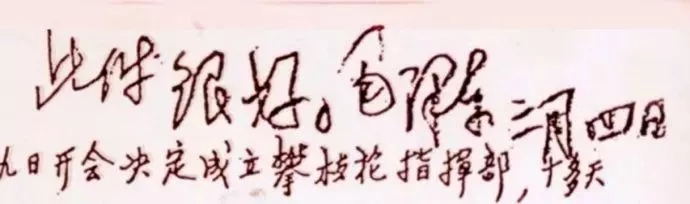 此件很好。毛泽东 三月四日
九日开会决定成立攀枝花指挥部，十多天